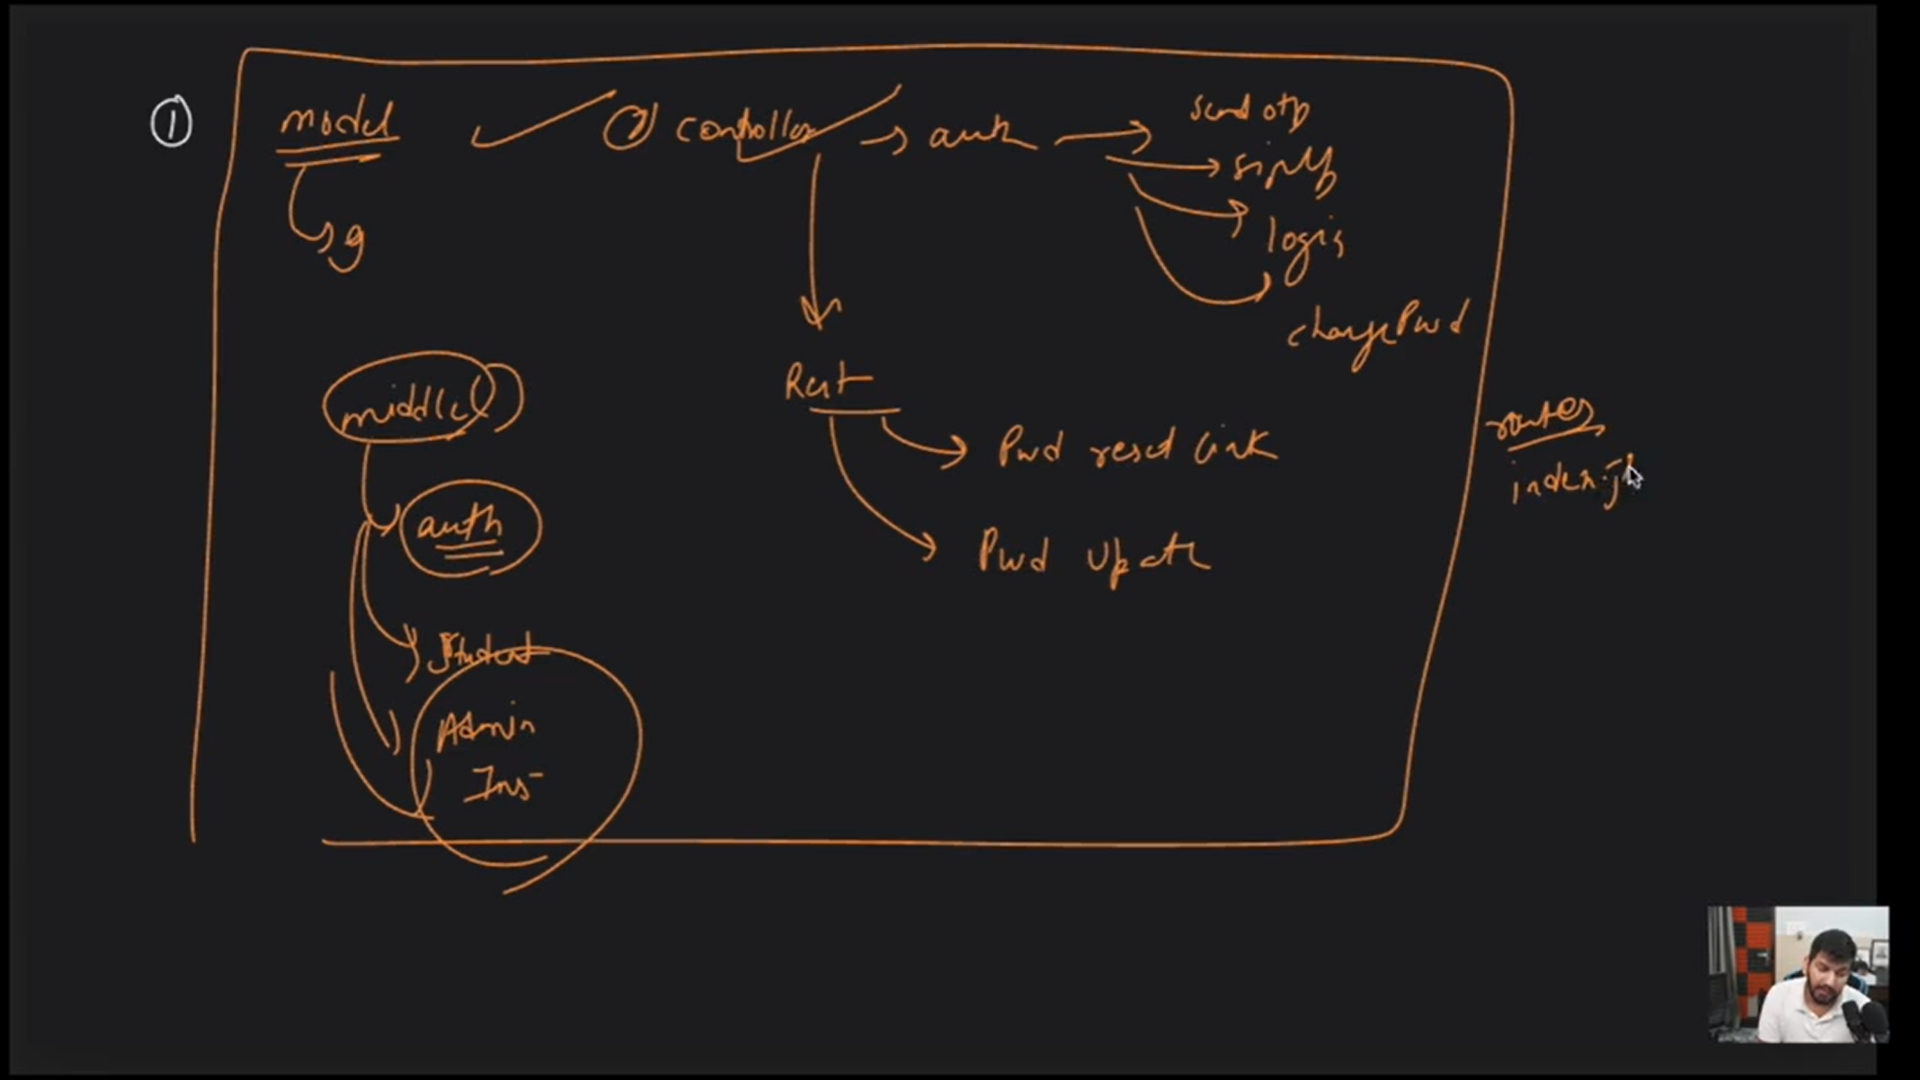 ① model
9
② controller → auth →
send otp
signup
login
changePwd
Pwd reset link
Pwd Update
middle
auth
Student
Admin
Ins
routes